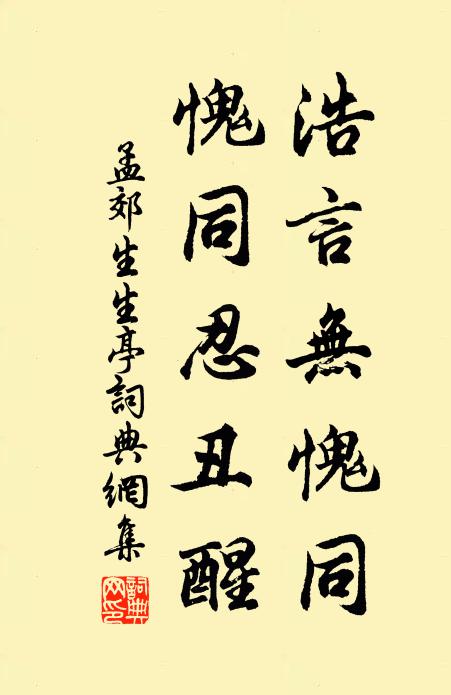 浩言無愧同
愧同忍丑醒
孟郊生生亭詞典網集
詞典
網印